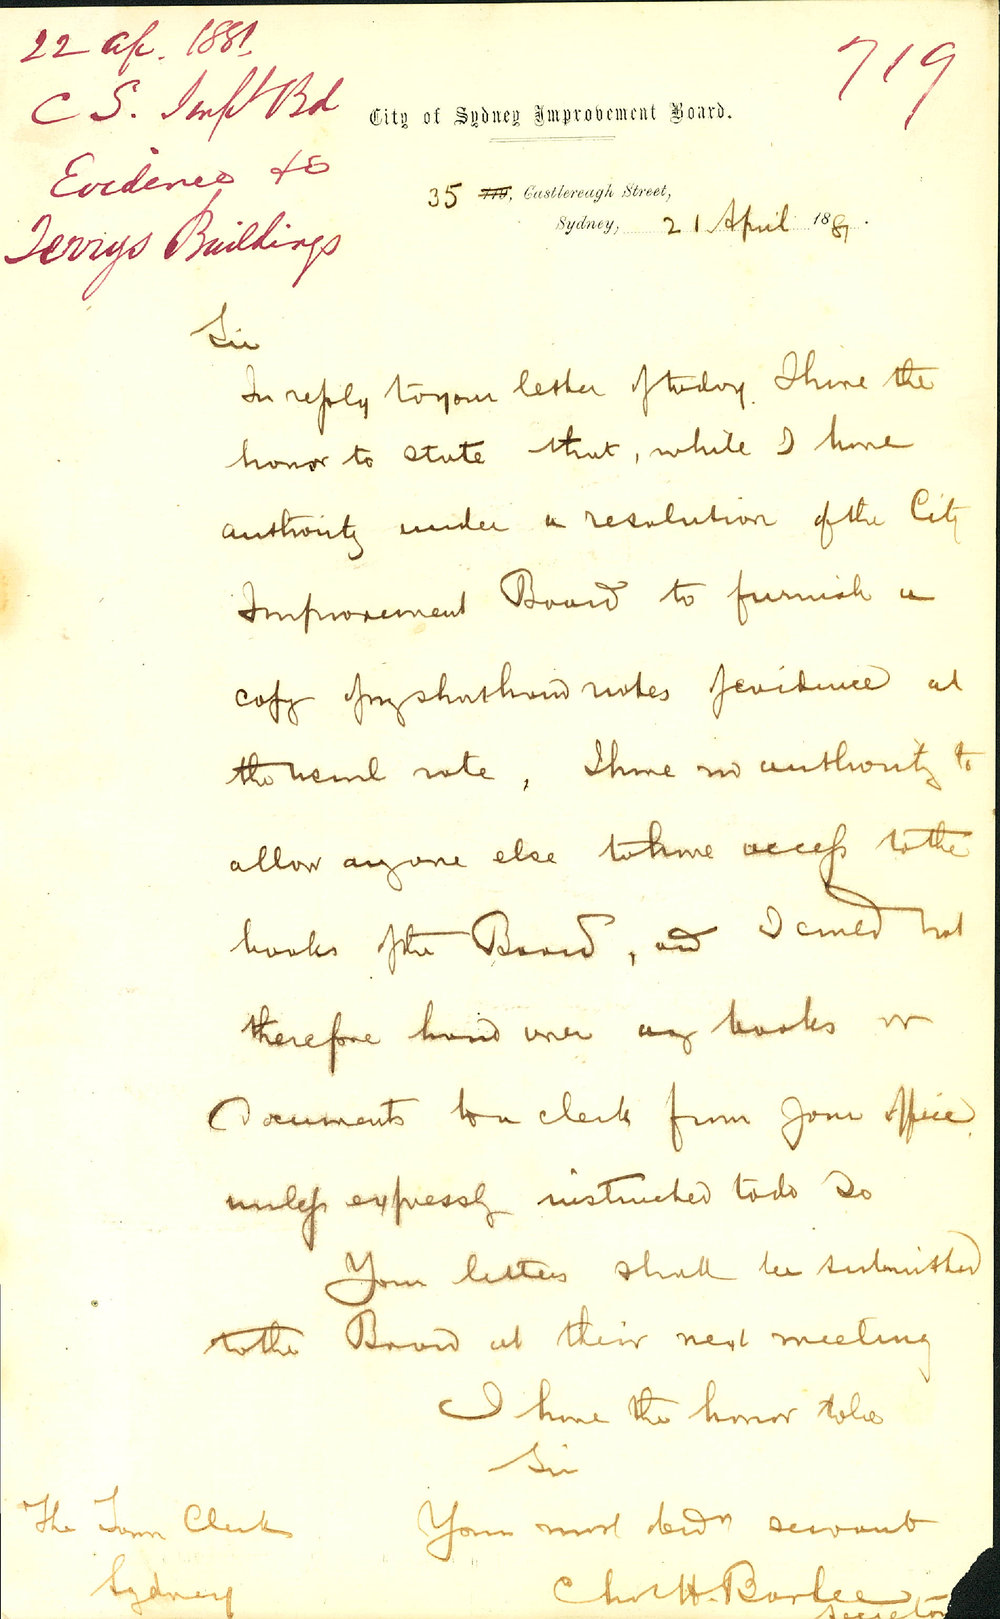 22 Ap. 1881.
C S. Impt Bd
Evidence to
Terrys Buildings
719
City of Sydney Improvement Board.
35 Castlereagh Street,
Sydney, 21 April 1881.
Sir
In reply to your letter of today. I have the
honor to state that, while I have
authority under a resolution of the City
Improvement Board to furnish a
copy of my shorthand notes of evidence at
the usual rate, I have no authority to
allow anyone else to have access to the
books of the Board, and I could not
therefore hand over any books or
Documents to a clerk from your office.
unless expressly instructed to do so
Your letters shall be submitted
to the Board at their next meeting
I have the honor to be
Sir
Your most obedn servant
Chas H. Barlee
Secretary
The Town Clerk
Sydney